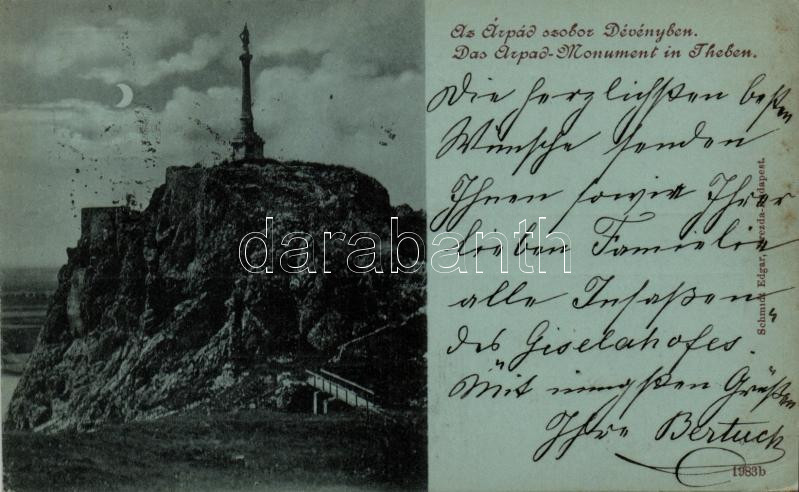 Az Árpád szobor Dévényben.
Das Arpad-Monument in Theben.
Die herzlichsten besten
Wünsche senden
Ihnen sowie Ihrer
lieben Familie
alle Insaßen
des Giselahofes.
Mit innigsten Grüßen
Ihre Bertuch
Schmidt Edgar, Budapest.
1983b
darabanth